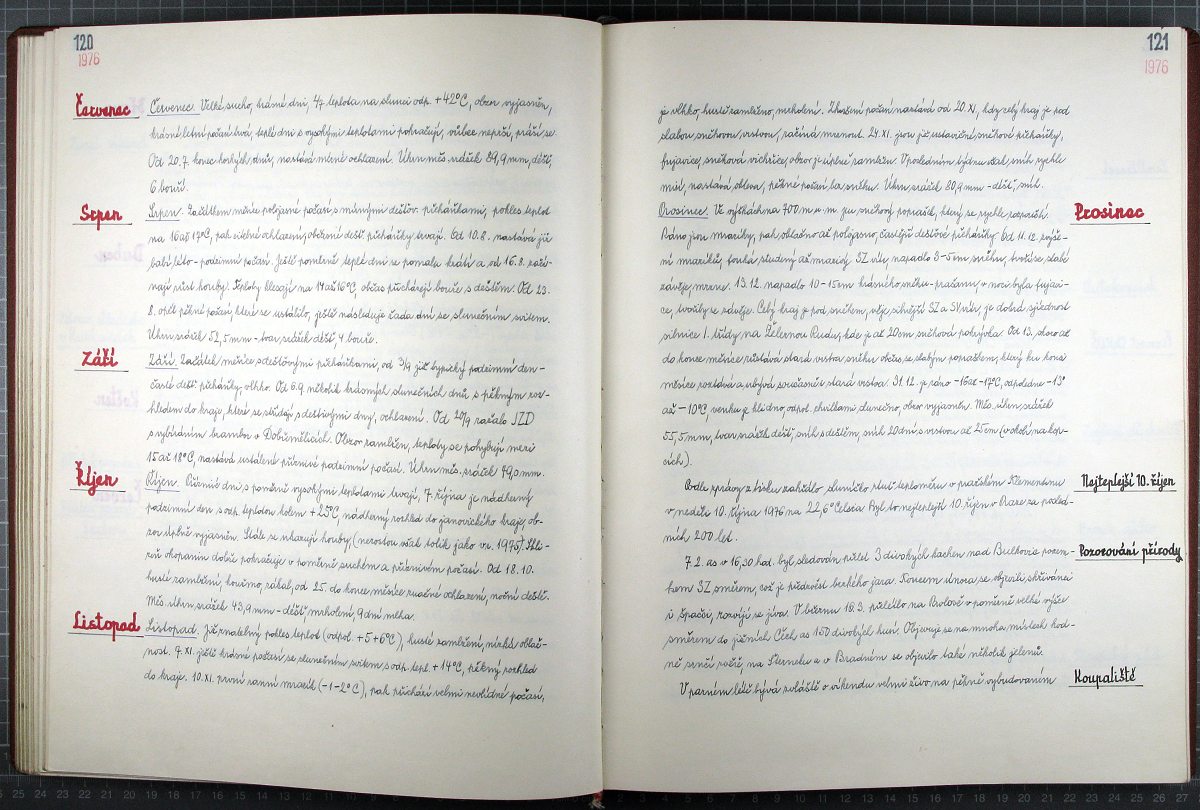 120
1976
Červenec
Červenec. Velké sucho, krásné dni, 4/7 teplota na slunci odp. +42°C, obzor vyjasněn,
krásné letní počasí trvá, teplé dni s vysokými teplotami pokračují, vůbec neprší, práší se.
Od 20.7. konec horkých dnů, nastává mírné ochlazení. Úhrn měs. srážek 89,9 mm, déšť,
6 bouří.
Srpen
Srpen. Začátkem měsíce polojasné počasí s mírnými dešťov. přeháňkami, pokles teplot
na 16 až 17°C, pak citelné ochlazení, občasné dešť. přeháňky trvají. Od 10.8. nastává již
babí léto - podzimní počasí. Ještě poměrně teplé dni se pomalu krátí a od 16.8. začí-
nají růst houby. Teploty klesají na 14 až 16°C, občas přicházejí bouře s deštěm. Od 23.
8. opět pěkné počasí, které se ustálilo, ještě následuje řada dní se slunečním svitem.
Úhrn srážek 52,5 mm - tvar srážek déšť, 4 bouře.
Září
Září. Začátek měsíce s dešťovými přeháňkami, od 3/9 již typický podzimní den -
časté dešť. přeháňky, vlhko. Od 6.9. několik krásných slunečních dnů s pěkným roz-
hledem do kraje, které se střídají s deštivými dny, ochlazení. Od 20/9 začalo JZD
s vybíráním brambor v Dobřemělicích. Obzor zamlžen, teploty se pohybují mezi
15 až 18°C, nastává ustálené příznivé podzimní počasí. Úhrn měs. srážek 49,0 mm.
Říjen
Říjen. Příznivé dni s poměrně vysokými teplotami trvají, 7. října je nádherný
podzimní den s odp. teplotou kolem +23°C, nádherný rozhled do janovického kraje, ob-
zor úplně vyjasněn. Stále se ukazují houby, (nerostou však tolik jako v r. 1975). Skli-
zeň okopanin dobře pokračuje v poměrně suchém a příznivém počasí. Od 18.10.
husté zamlžení, kouřmo, zákal, od 25. do konce měsíce značné ochlazení, noční deště.
Měs. úhrn srážek 43,9 mm - déšť, mrholení, 9 dní mlha.
Listopad
Listopad. Již znatelný pokles teplot (odpol. +5 +6°C), husté zamlžení, nízká oblač-
nost. 9. XI. ještě krásné počasí se slunečním svitem s odp. tepl. +14°C, pěkný rozhled
do kraje. 10. XI. první ranní mrazík (-1 -2°C), pak přichází velmi nevlídné počasí,
121
1976
je vlhko, hustě zamlženo, mrholení. Zhoršení počasí nastává od 20. XI., kdy celý kraj je pod
slabou sněhovou vrstvou, začíná mrznout. 24. XI. jsou již ustavičné sněhové přeháňky,
fujavice, sněhová vichřice, obzor je úplně zamlžen. V posledním týdnu však sníh rychle
mizí, nastává obleva, pěkné počasí bez sněhu. Úhrn srážek 80,9 mm - déšť, sníh.
Prosinec
Prosinec. Ve výškách na 700 m n. m. je sněhový poprašek, který se rychle rozpouští.
Ráno jsou mrazíky, pak oblačno až polojasno, častější dešťové přeháňky. Od 11.12. zvýše-
ní mrazíků, fouká studený až mrazivý SZ vítr, napadlo 3-5 cm sněhu, tvoří se slabé
závěje, mrzne. 13.12. napadlo 10-15 cm krásného sněhu - prašanu, v noci byla fujavi-
ce, tvořily se závěje. Celý kraj je pod sněhem, vlivem silnější SZ a SV vítr, je dobrá sjízdnost
silnice I. třídy na Železnou Rudu, kde je až 20 cm sněhová pokrývka. Od 13. skoro až
do konce měsíce zůstává stará vrstva sněhu občas se slabým popraškem, který ke konci
měsíce roztává a ubývá současně i stará vrstva. 31.12. je ráno -16 až -17°C, odpoledne -13°
až -10°C, venku je klidno, odpol. chvilkami slunečno, obzor vyjasněn. Měs. úhrn srážek
55,5 mm, tvar srážek déšť, sníh s deštěm, sníh 20 dní s vrstvou až 25 cm (v okolí na kop-
cích).
Nejteplejší 10. říjen
Podle zprávy z tisku zahřálo sluníčko rtuť teploměru v pražském Klementinu
v neděli 10. října 1976 na 22,6° Celsia. Byl to nejteplejší 10. říjen v Praze za posled-
ních 200 let.
Pozorování přírody
7.2. as v 16,30 hod. byl sledován přelet 3 divokých kachen nad Bulkovic potů-
kem SZ směrem, což je předzvěst brzkého jara. Koncem února se objevili skřivánci
i špačci, rozvíjí se jíva. V březnu 18.3. přeletělo na Brolově v poměrně velké výšce
směrem do jižních Čech as 150 divokých husí. Objevuje se na mnoha místech hod-
ně srnčí zvěře, na Sterneku a v Bradném se objevilo také několik jelenů.
Koupaliště
V parném létě bývá zvláště o víkendu velmi živo na pěkně vybudovaném